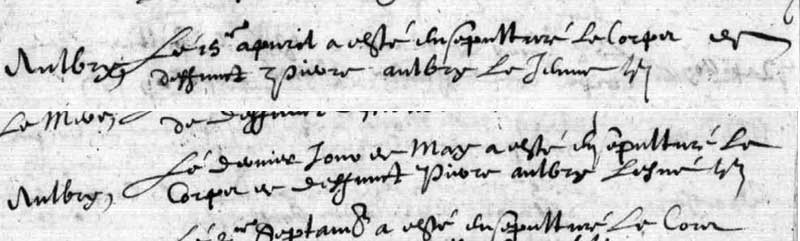 Aulbry
Le 15me apvril a esté ensepulturé Le Corps de
deffunct Pierre aulbry Le Jeune
de deffunct
Aulbry
Le dernier Jour de May a esté ensepulturé Le
Corps de deffunct Pierre aulbry Lesné
Septamb a esté ensepulturé Le Corps